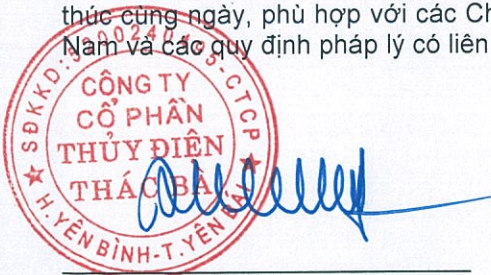 thức cùng ngày, phù hợp với các Ch
Nam và các quy định pháp lý có liên
SĐKKD:5200240495-CTCP
CÔNG TY
CỔ PHẦN
THỦY ĐIỆN
THÁC BÀ
H.YÊN BÌNH-T.YÊN BÁI